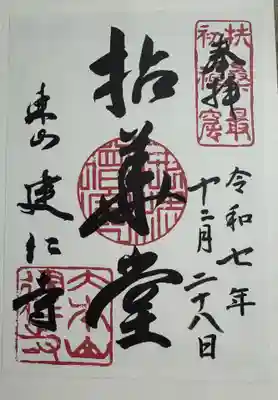 奉拝
扶桑最
初禅窟
令和七年
十二月二十八日
拈華堂
東山 建仁寺
大本山